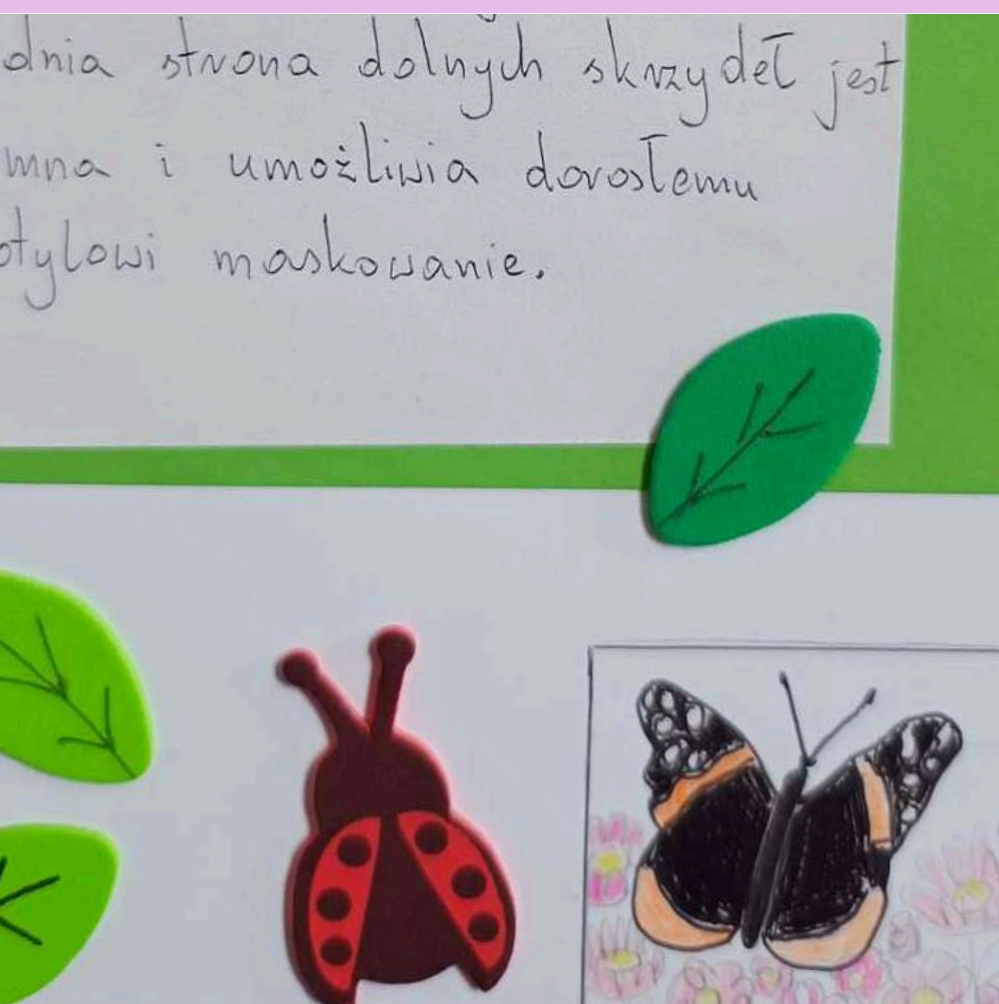 dnia strona dolnych skrzydeł jest
mna i umożliwia dorosłemu
otylowi maskowanie.